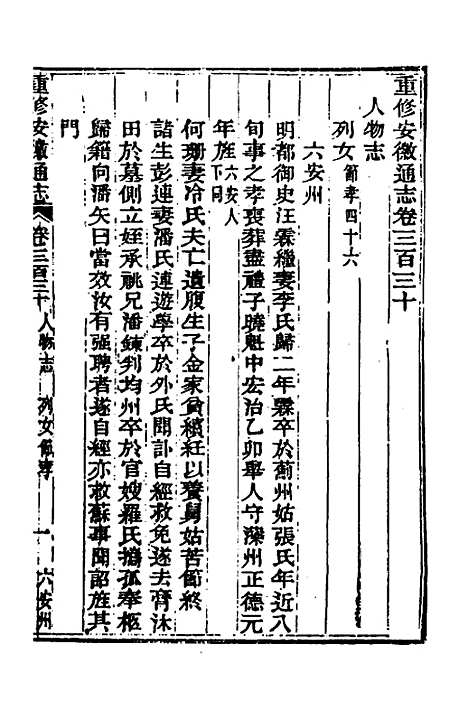 重修安徽通志卷三百三十
人物志
列女節孝四十六
六安州
明都御史汪霖繼妻李氏歸二年霖卒於薊州姑張氏年近八
旬事之孝喪葬盡禮子曉魁中宏治乙卯舉人守灤州正德元
年旌六安人下同
何珊妻冷氏夫亡遺腹生子金家貧績紝以養舅姑苦節終
諸生彭連妻潘氏連遊學卒於外氏聞訃自經救免遂去膏沐
田於墓側立姪承祧兄潘鍊判均州卒於官嫂羅氏攜孤奉柩
歸籍向潘矢日當效汝有强聘者遂自經亦救蘇事聞詔旌其
門
重修安徽通志 卷三百三十 人物志 列女節孝 一 六安州